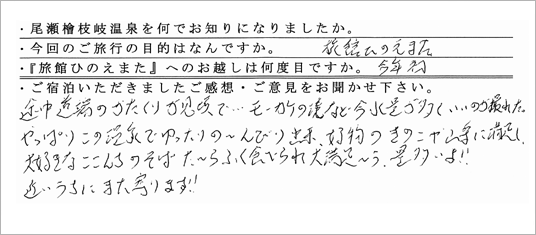 ・尾瀬檜枝岐温泉を何でお知りになりましたか。
・今回のご旅行の目的はなんですか。 旅館ひのえまた
・『旅館ひのえまた』へのお越しは何度目ですか。 今年初
・ご宿泊いただきましたご感想・ご意見をお聞かせ下さい。
途中道端のかたくりが見頃で…モーカケの滝など今水量が多くいいのが撮れた。
やっぱりこの温泉でゆったりの～んびり出来、好物のきのこや山菜に満足し、
大好きなここんちのそばた～らふく食べられ大満足～う、星多いよ!!
近いうちにまた寄ります!!